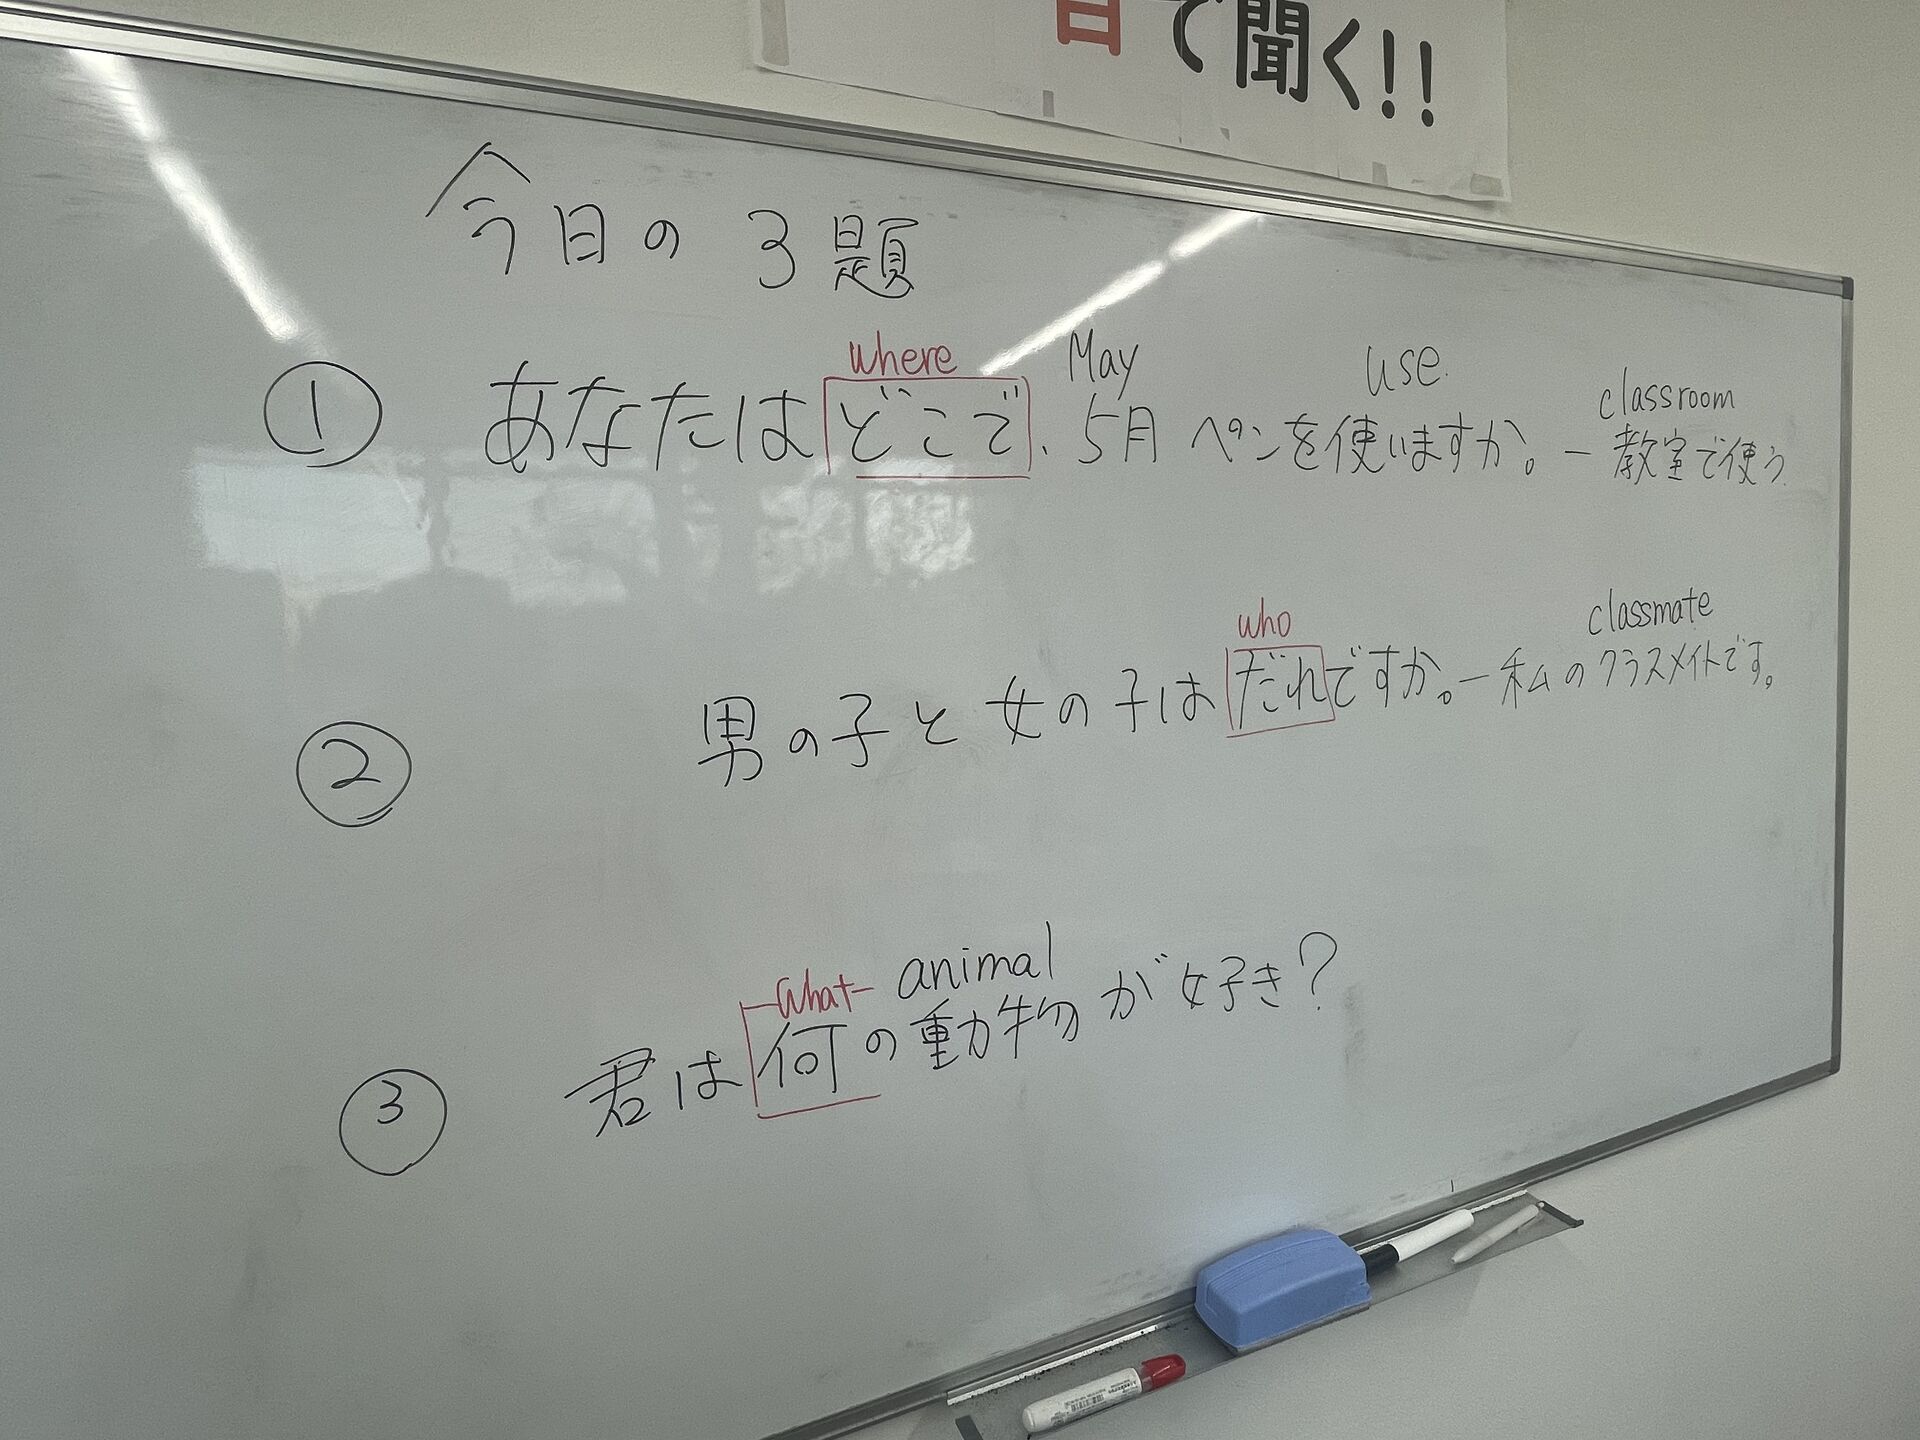 で聞く!!
今日の3題
where May use.
① あなたはどこで、5月 ペンを使いますか。ー教室で使う
classroom
who classmate
② 男の子と女の子はだれですか。ー私のクラスメイトです。
What animal
③ 君は何の動物が好き?